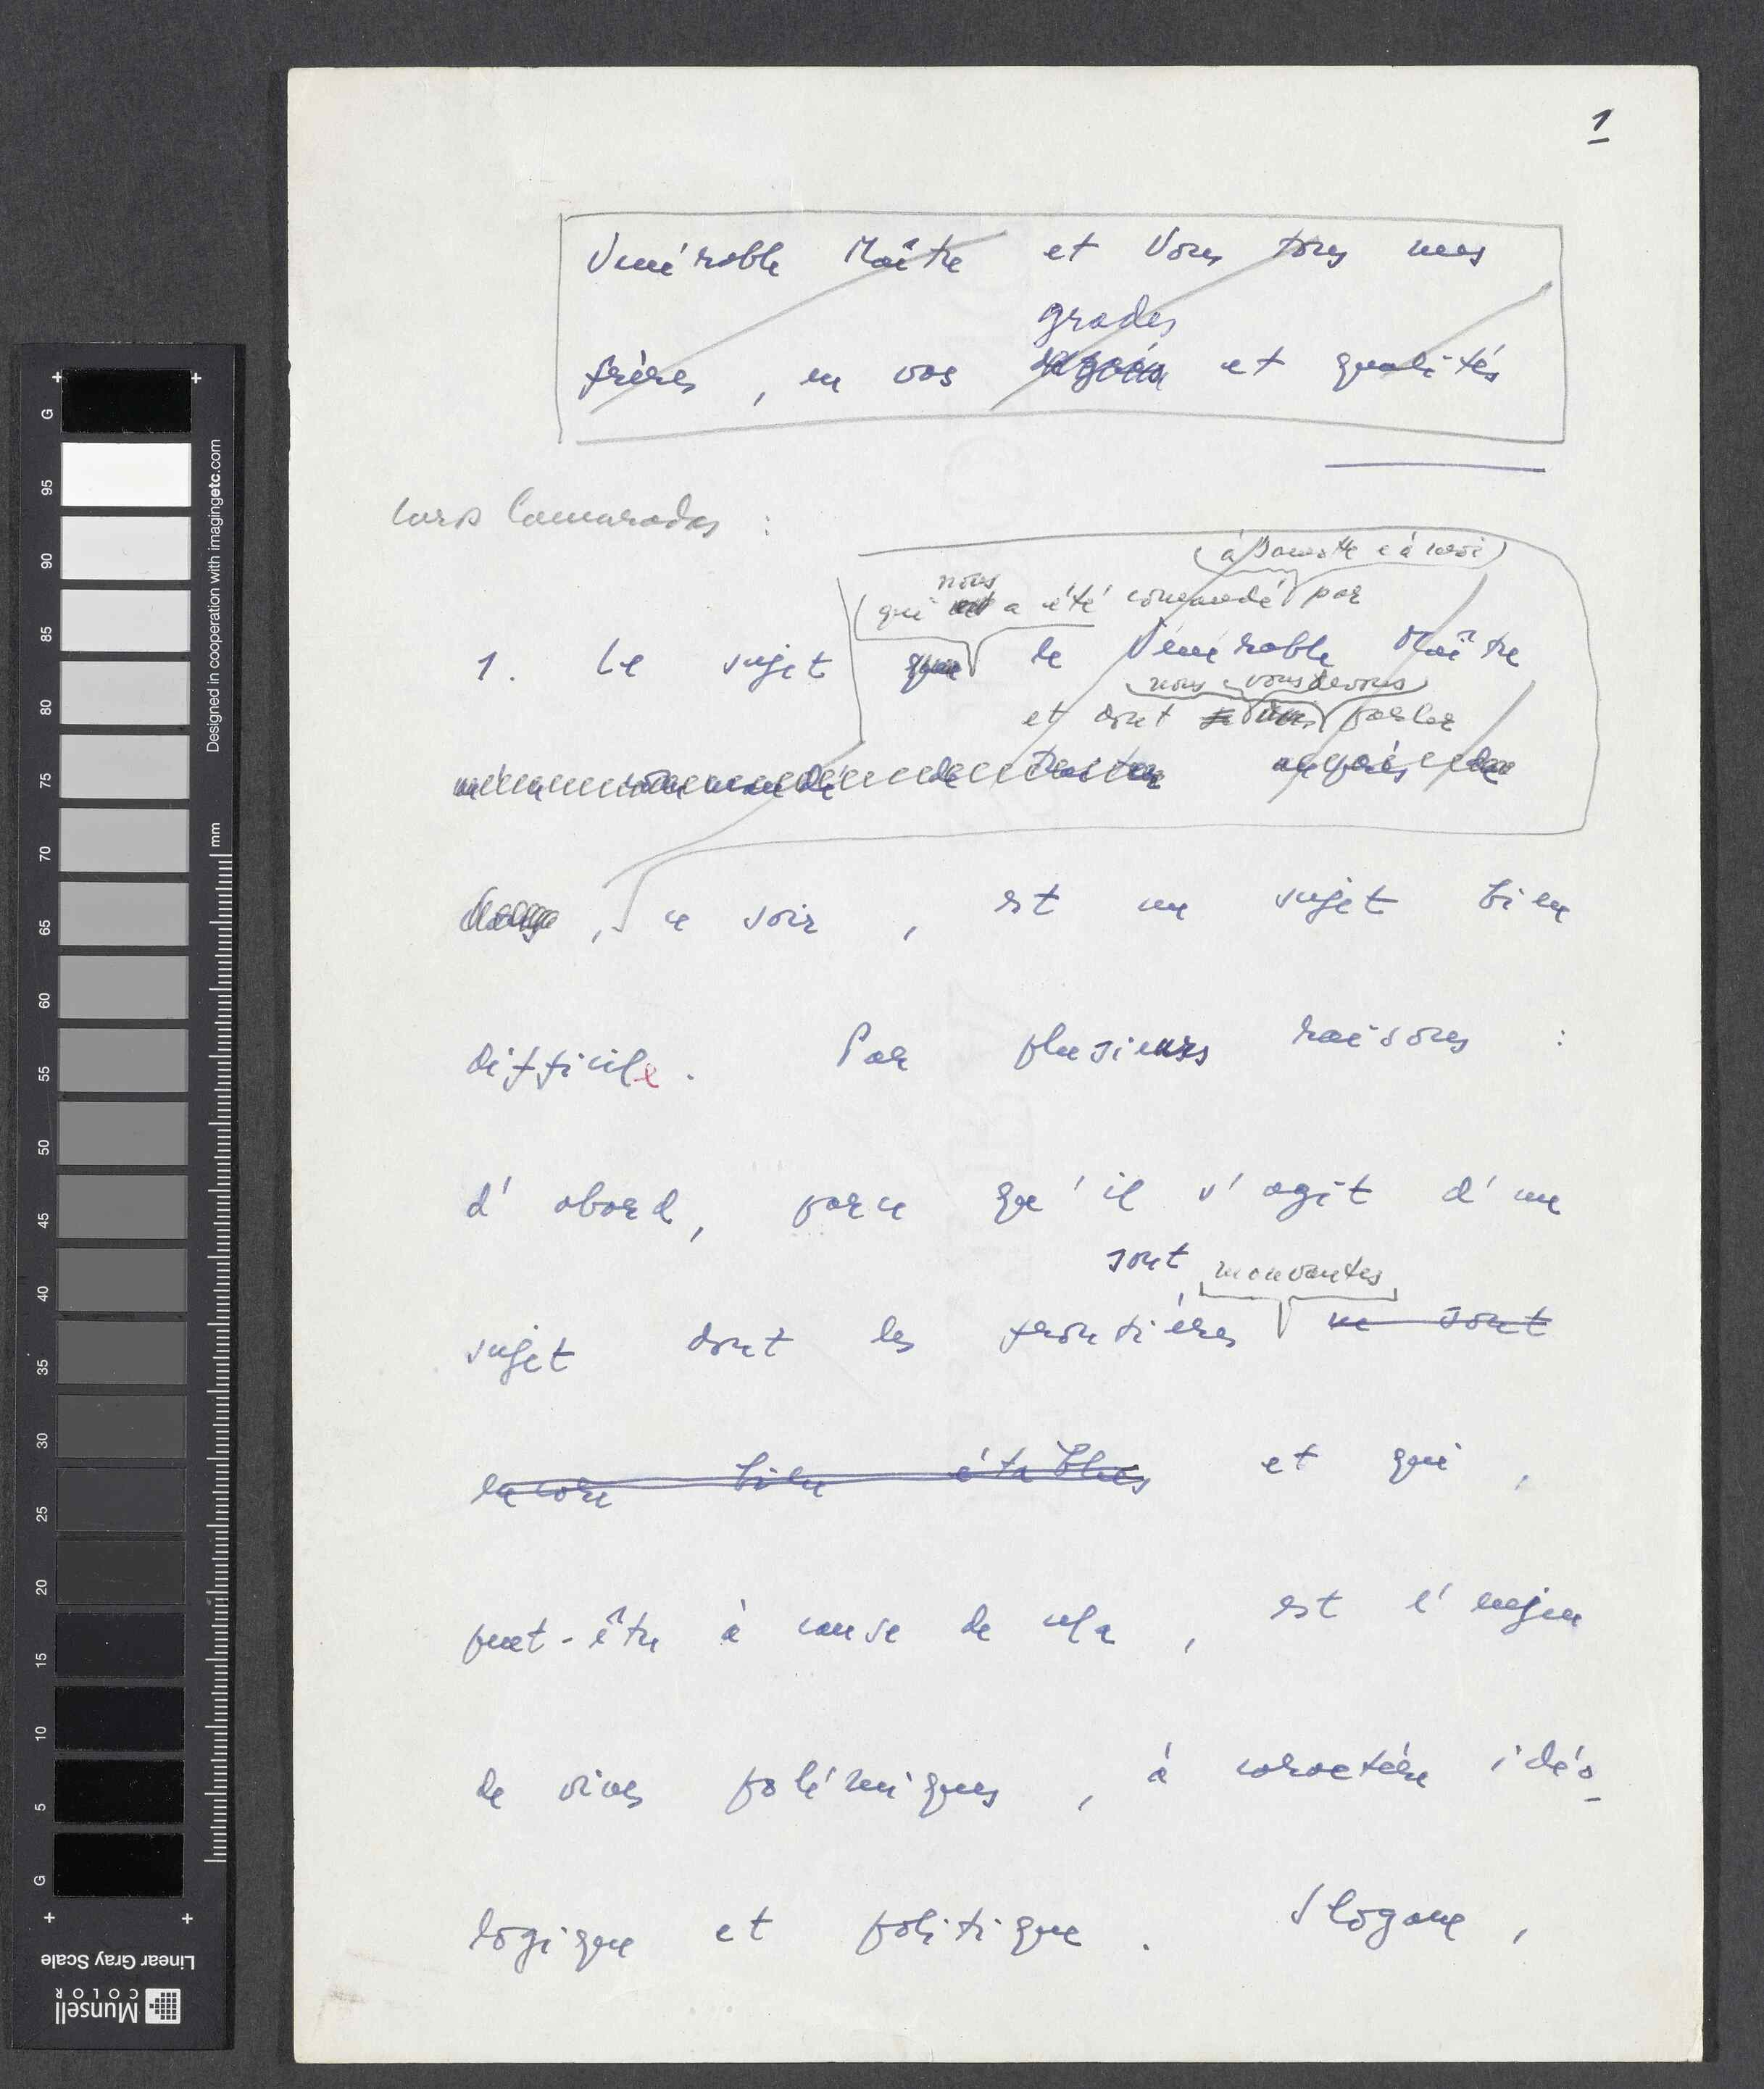 1
Vénérable Maître et Vous tous mes
grades
frères, en vos et qualités
Camarades :
(à et à moi)
nous
(qui a été commandé par
1. Le sujet que le Vénérable Maître
nous devons
et dont parler
commandé de traiter auprès de
, ce soir, est un sujet bien
difficile. Par plusieurs raisons :
d'abord, parce qu'il s'agit d'un
sont mouvantes
sujet dont les frontières ne sont
encore bien établies et qui,
peut-être à cause de cela, est l'enjeu
de vives polémiques, à caractère idéo
logique et politique. Slogane,
G
95
90
85
80
75
70
65
60
55
50
45
40
35
30
25
20
15
10
5
G
mm
Designed in cooperation with imagingetc.com
Linear Gray Scale
Munsell
COLOR